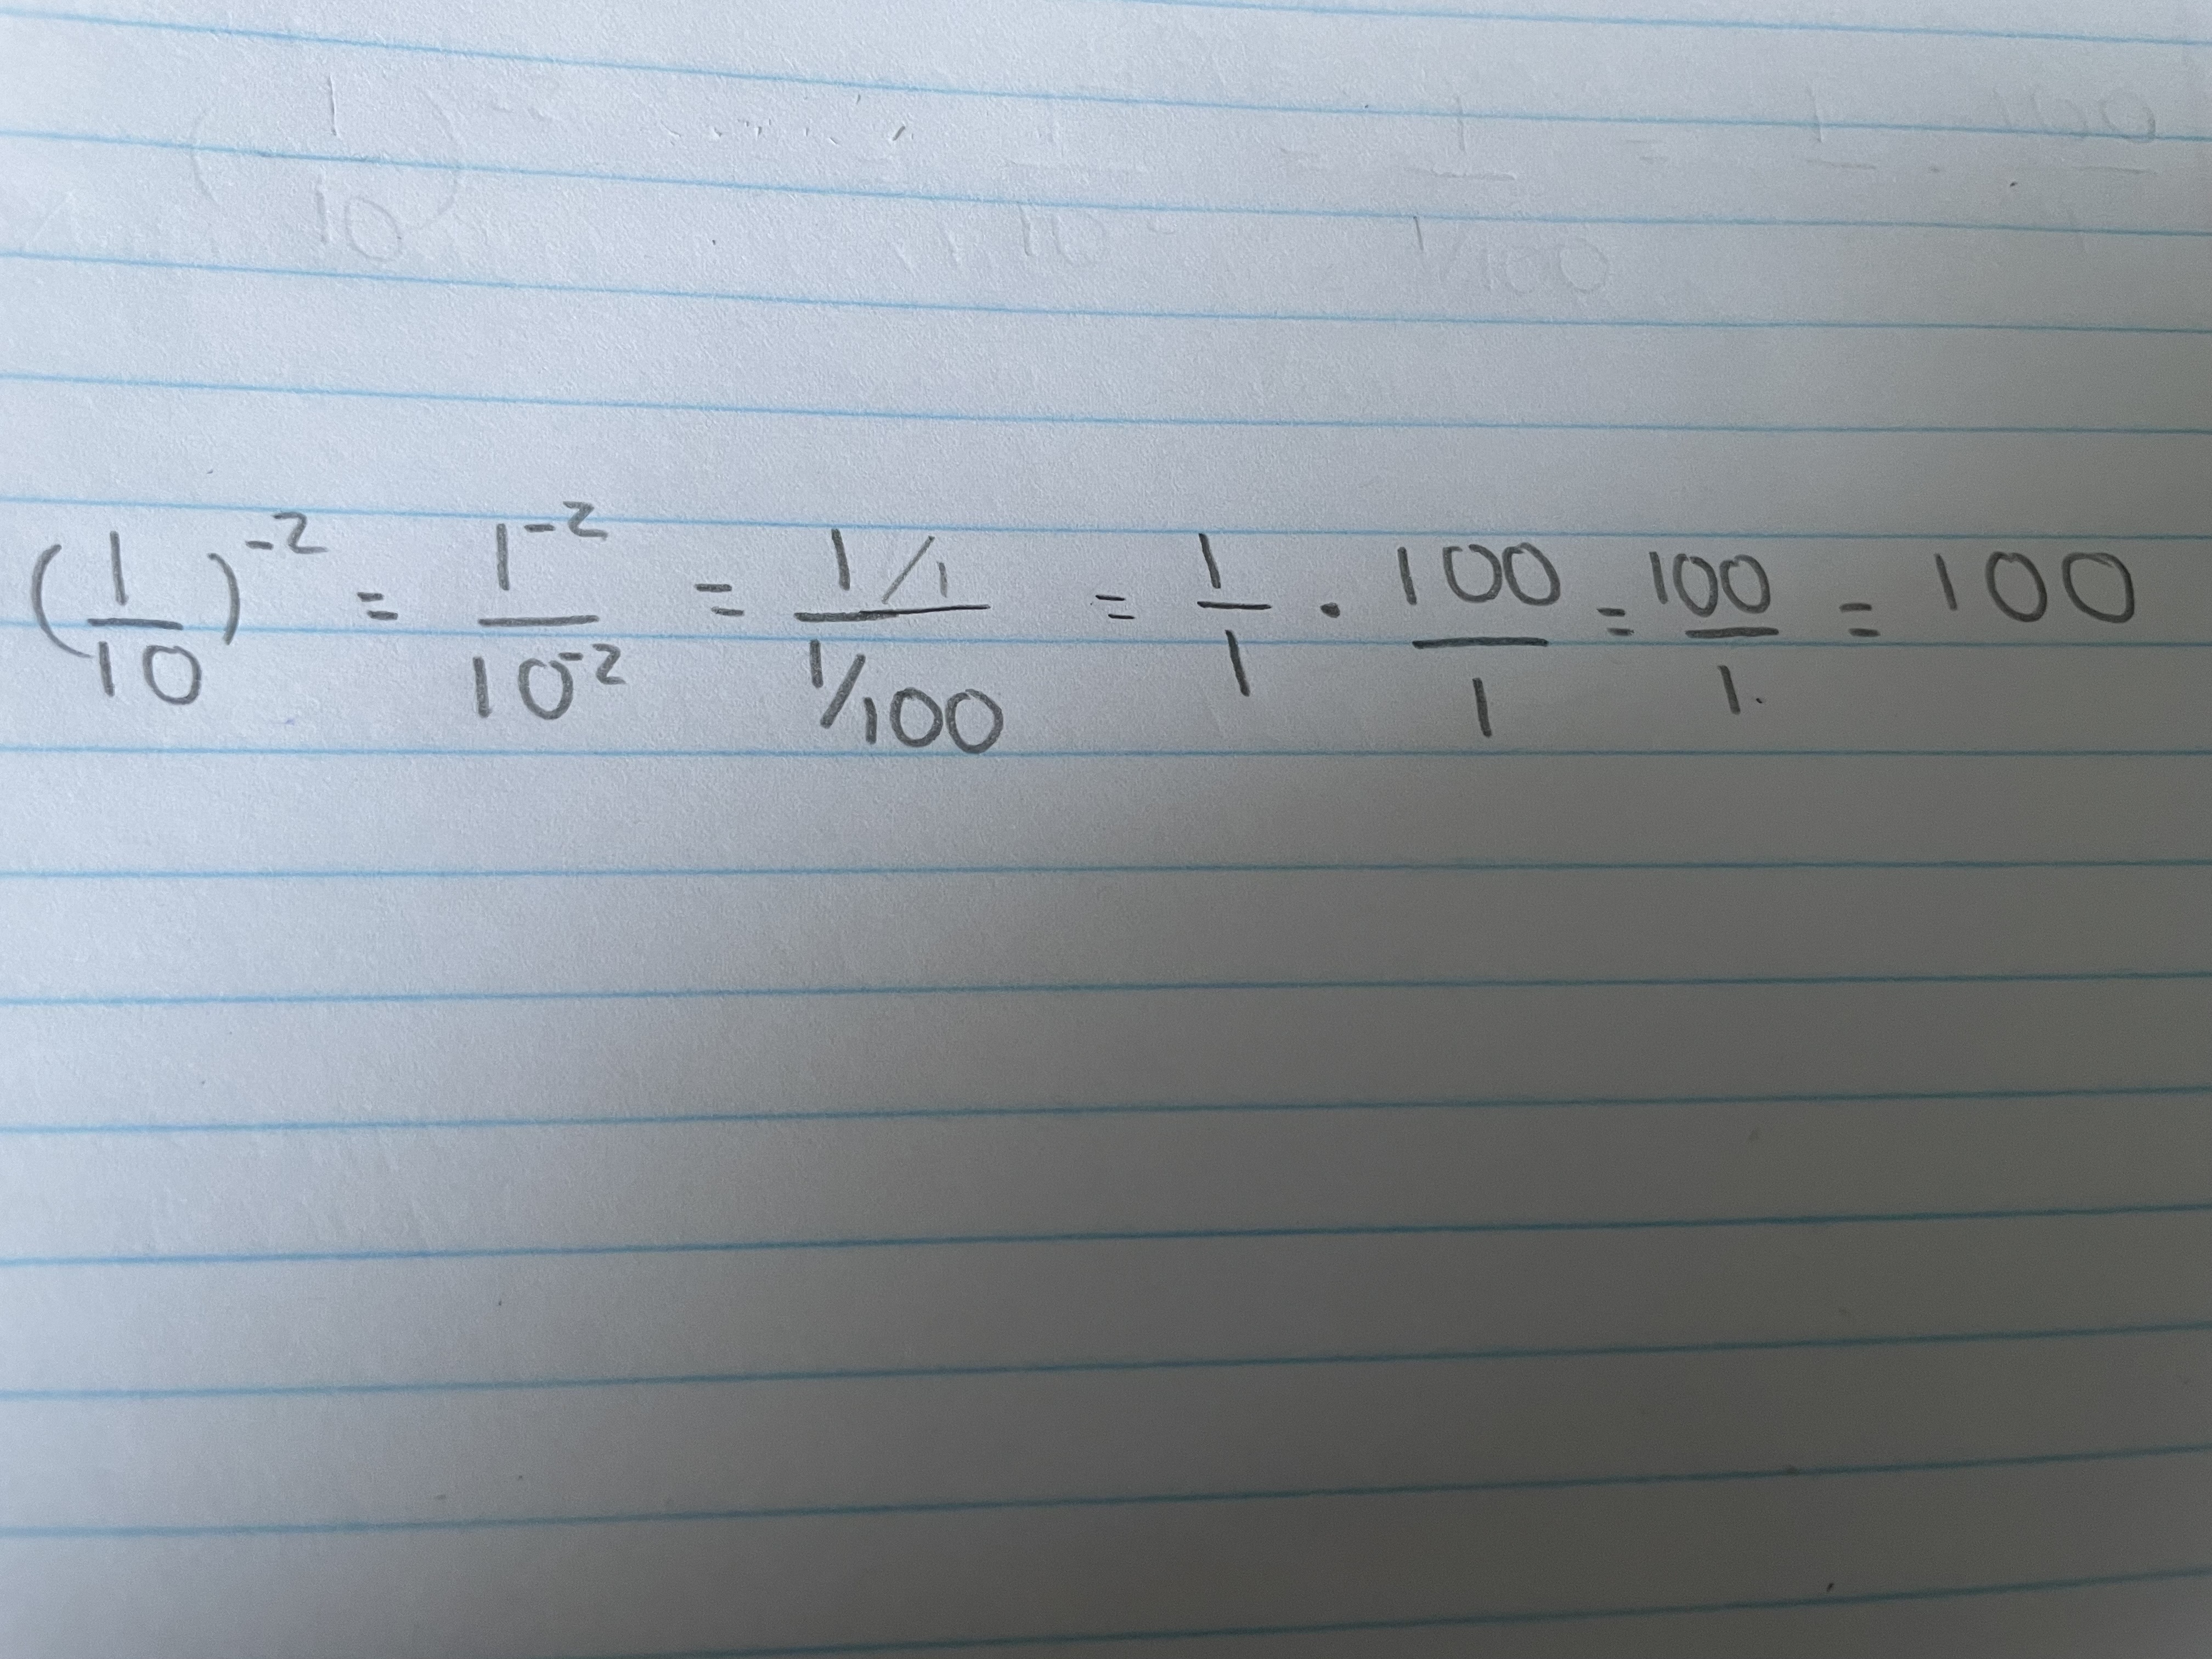 (1/10)^-2 = 1^-2/10^-2 = (1/1)/(1/100) = 1/1 · 100/1 = 100/1. = 100